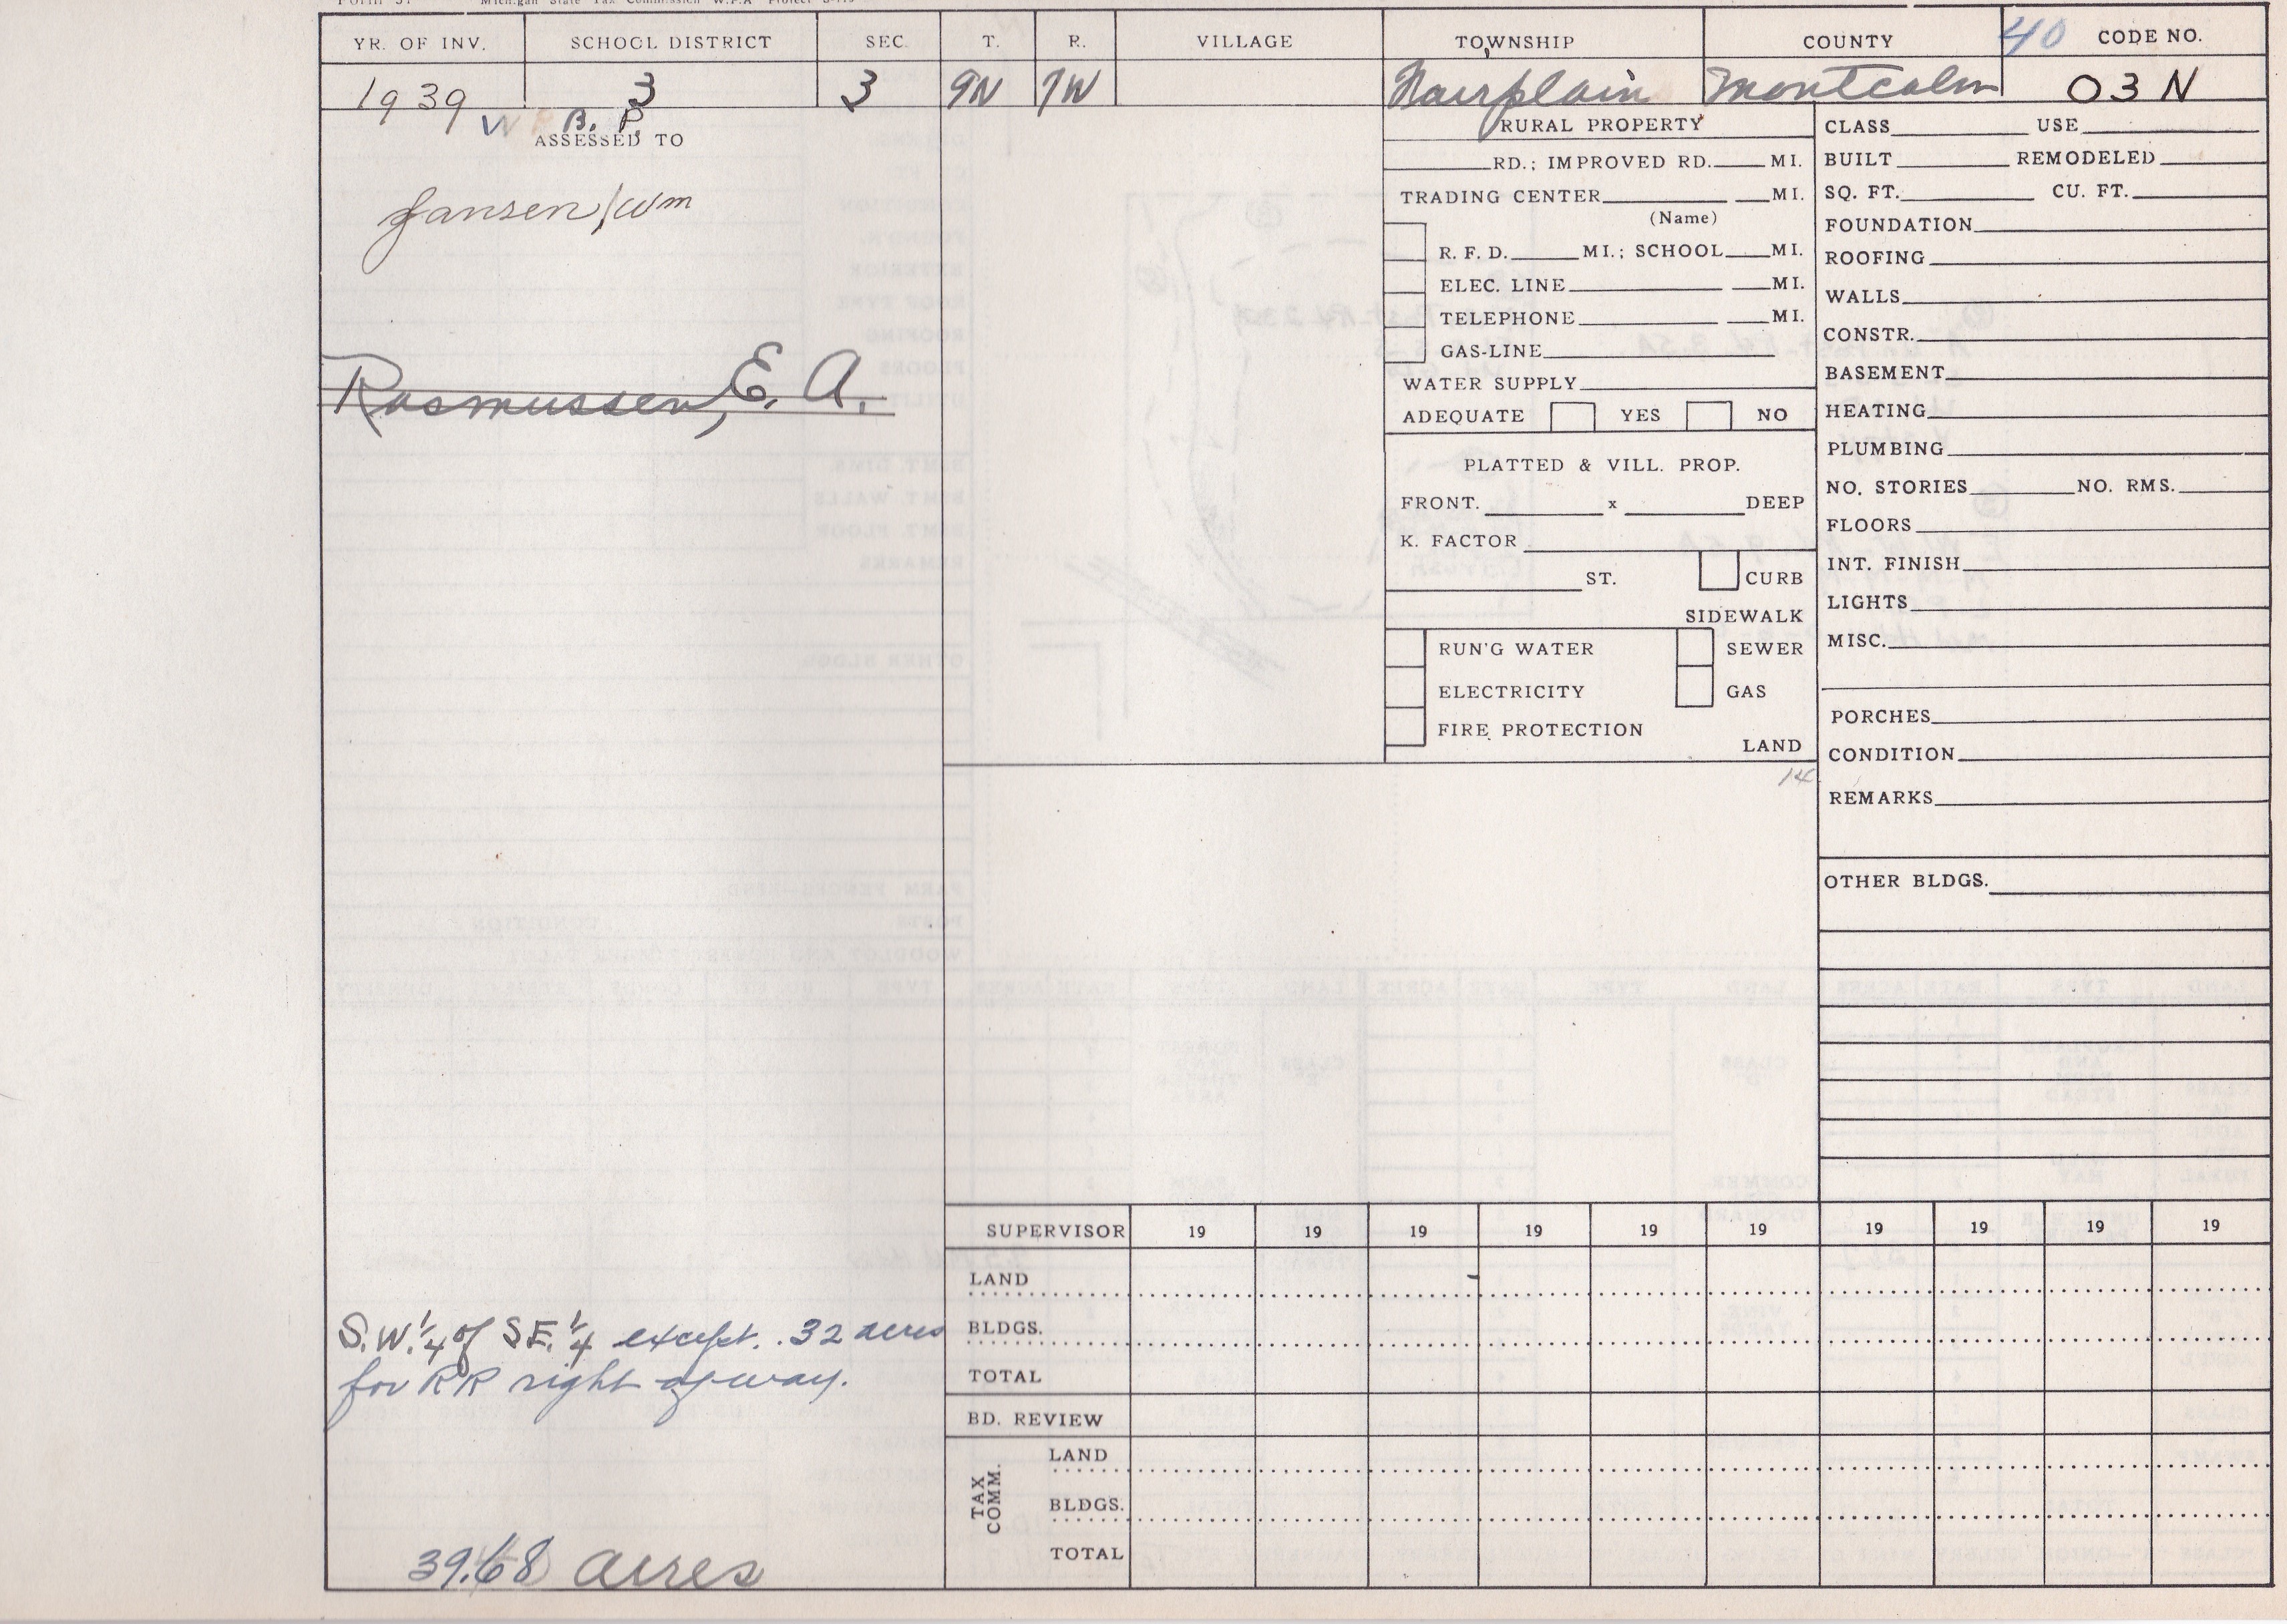 Form 37 Michigan State Tax Commission W.P.A Project
YR. OF INV. SCHOOL DISTRICT SEC. T. R. VILLAGE TOWNSHIP COUNTY 40 CODE NO.
1939 3 3 9N 7W Fairplain Montcalm 03 N
B. P.
ASSESSED TO
Jansen, Wm
Rasmussen, E. A.
S.W. 1/4 of SE. 1/4 except .32 acres
for RR right of way.
39.68 acres
RURAL PROPERTY
RD.; IMPROVED RD. MI.
TRADING CENTER MI.
(Name)
R. F. D. MI.; SCHOOL MI.
ELEC. LINE MI.
TELEPHONE MI.
GAS-LINE
WATER SUPPLY
ADEQUATE YES NO
PLATTED & VILL. PROP.
FRONT. x DEEP
K. FACTOR
ST. CURB
SIDEWALK
RUN'G WATER SEWER
ELECTRICITY GAS
FIRE PROTECTION
LAND
14
CLASS USE
BUILT REMODELED
SQ. FT. CU. FT.
FOUNDATION
ROOFING
WALLS
CONSTR.
BASEMENT
HEATING
PLUMBING
NO. STORIES NO. RMS.
FLOORS
INT. FINISH
LIGHTS
MISC.
PORCHES
CONDITION
REMARKS
OTHER BLDGS.
SUPERVISOR 19 19 19 19 19 19 19 19 19 19
LAND
BLDGS.
TOTAL
BD. REVIEW
TAX COMM.
LAND
BLDGS.
TOTAL